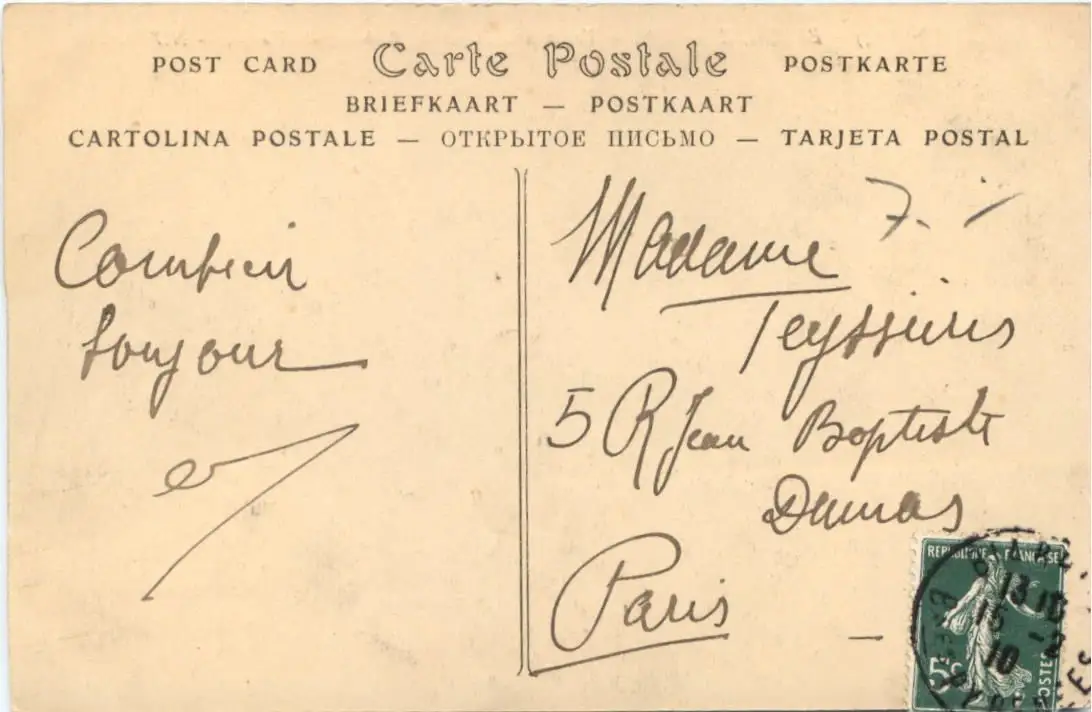 POST CARD Carte Postale POSTKARTE
BRIEFKAART — POSTKAART
CARTOLINA POSTALE — ОТКРЫТОЕ ПИСЬМО — TARJETA POSTAL
bonjour
Madame
5 R Jean Baptiste
Dumas
Paris
REPUBLIQUE FRANCAISE
13
15
10
5c
POSTES